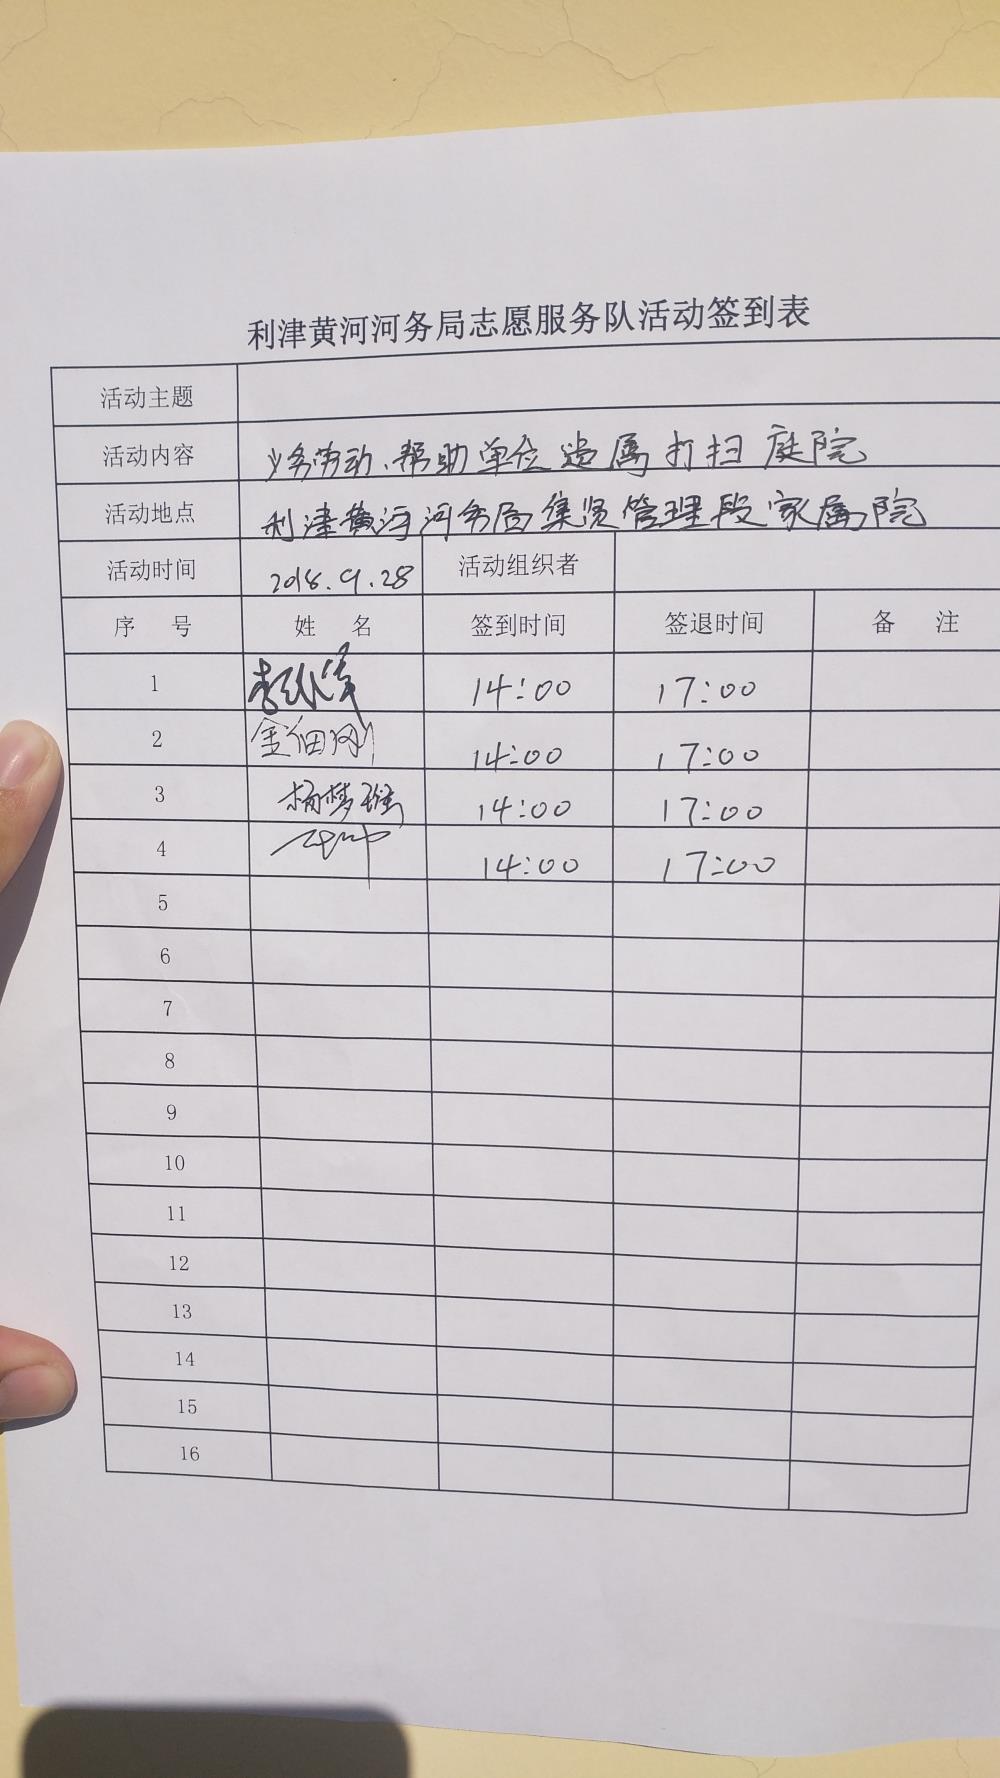 利津黄河河务局志愿服务队活动签到表
活动主题
活动内容 义务劳动、帮助单位遗属打扫庭院
活动地点 利津黄河河务局集贤管理段家属院
活动时间 2018.9.28 活动组织者
序 号 姓 名 签到时间 签退时间 备 注
1 14:00 17:00
2 14:00 17:00
3 杨梦瑶 14:00 17:00
4 14:00 17:00
5
6
7
8
9
10
11
12
13
14
15
16